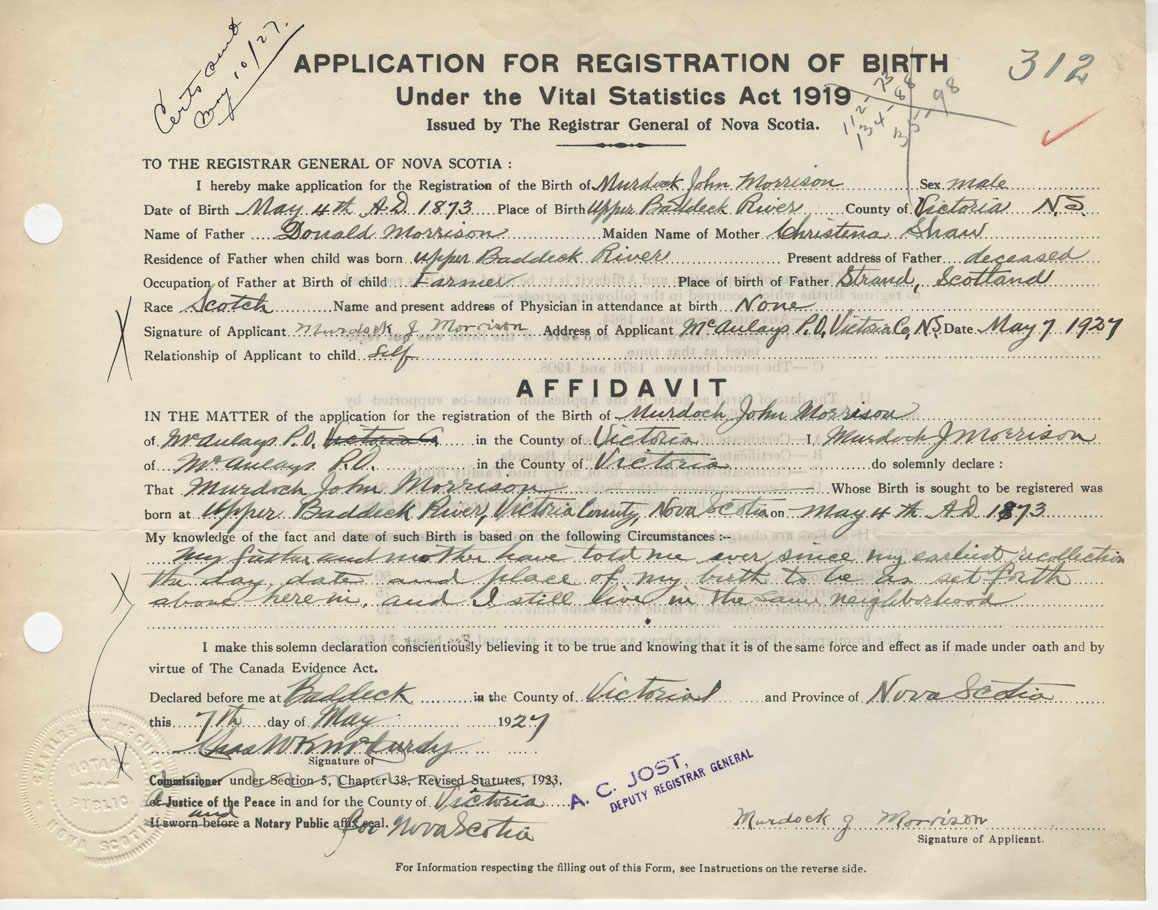 Certs sent
May 10/27.
APPLICATION FOR REGISTRATION OF BIRTH
312
Under the Vital Statistics Act 1919
112-73
134-88
135-98
Issued by The Registrar General of Nova Scotia.
TO THE REGISTRAR GENERAL OF NOVA SCOTIA :
I hereby make application for the Registration of the Birth of Murdock John Morrison Sex male
Date of Birth May 4th A.D. 1873 Place of Birth Upper Baddeck River County of Victoria N.S.
Name of Father Donald Morrison Maiden Name of Mother Christina Shaw
Residence of Father when child was born Upper Baddeck River Present address of Father deceased
Occupation of Father at Birth of child Farmer Place of birth of Father Strand, Scotland
Race Scotch Name and present address of Physician in attendance at birth None
Signature of Applicant Murdock J Morrison Address of Applicant McAulays P.O, Victoria Co, N.S. Date May 7 1927
Relationship of Applicant to child Self
AFFIDAVIT
IN THE MATTER of the application for the registration of the Birth of Murdoch John Morrison
of McAulays P.O, Victoria Co in the County of Victoria I, Murdoch J Morrison
of McAulays P.O. in the County of Victoria do solemnly declare :
That Murdoch John Morrison Whose Birth is sought to be registered was
born at Upper Baddeck River, Victoria County, Nova Scotia on May 4th A.D 1873
My knowledge of the fact and date of such Birth is based on the following Circumstances :--
My father and mother have told me ever since my earliest recollection
the day, date and place of my birth to be as set forth
above herein, and I still live in the same neighborhood
I make this solemn declaration conscientiously believing it to be true and knowing that it is of the same force and effect as if made under oath and by
virtue of The Canada Evidence Act.
Declared before me at Baddeck in the County of Victoria and Province of Nova Scotia
this 7th day of May 1927
Chas W K McCurdy
Signature of
Commissioner under Section 5, Chapter 38, Revised Statutes, 1923,
or Justice of the Peace in and for the County of Victoria
and
If sworn before a Notary Public affix seal. for Nova Scotia
NOTARY
PUBLIC
NOVA SCOTIA
A. C. JOST,
DEPUTY REGISTRAR GENERAL
Murdock J Morrison
Signature of Applicant.
For Information respecting the filling out of this Form, see Instructions on the reverse side.